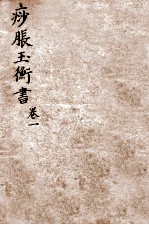 痧脹玉衡書卷一